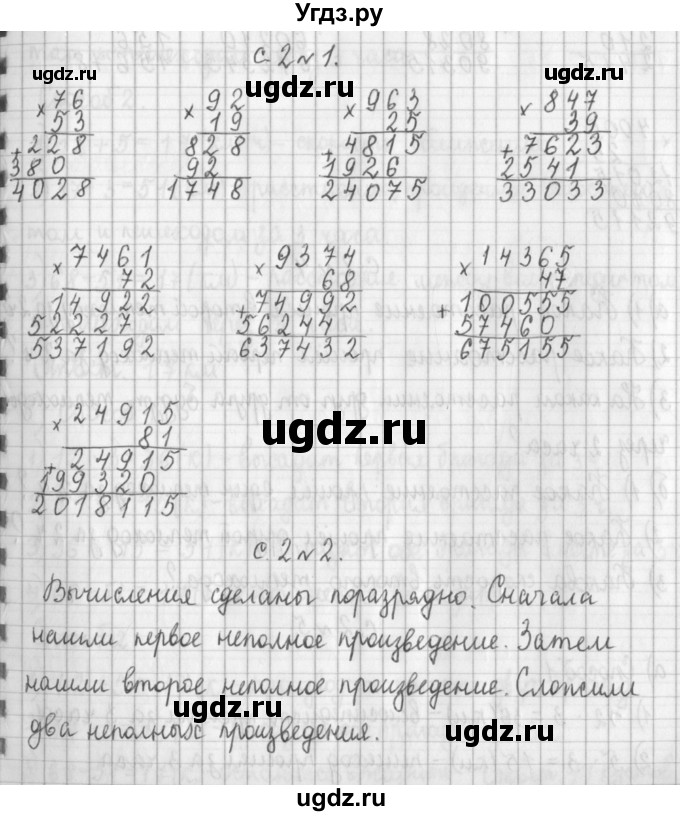 Угдз.ру
с. 2 № 1.
× 76
53
+ 228
380
4028
× 92
19
828
92
1748
× 963
25
+ 4815
1926
24075
× 847
39
+ 7623
2541
33033
× 7461
72
14922
52227
537192
× 9374
68
+ 74992
56244
637432
× 14365
47
+ 100555
57460
675155
× 24915
81
+ 24915
199320
2018115
с. 2 № 2.
Вычисления сделаны поразрядно. Сначала
нашли первое неполное произведение. Затем
нашли второе неполное произведение. Сложили
два неполных произведения.
ugdz.ru
ugdz.ru
ugdz.ru
ugdz.ru
ugdz.ru
ugdz.ru
ugdz.ru
ugdz.ru